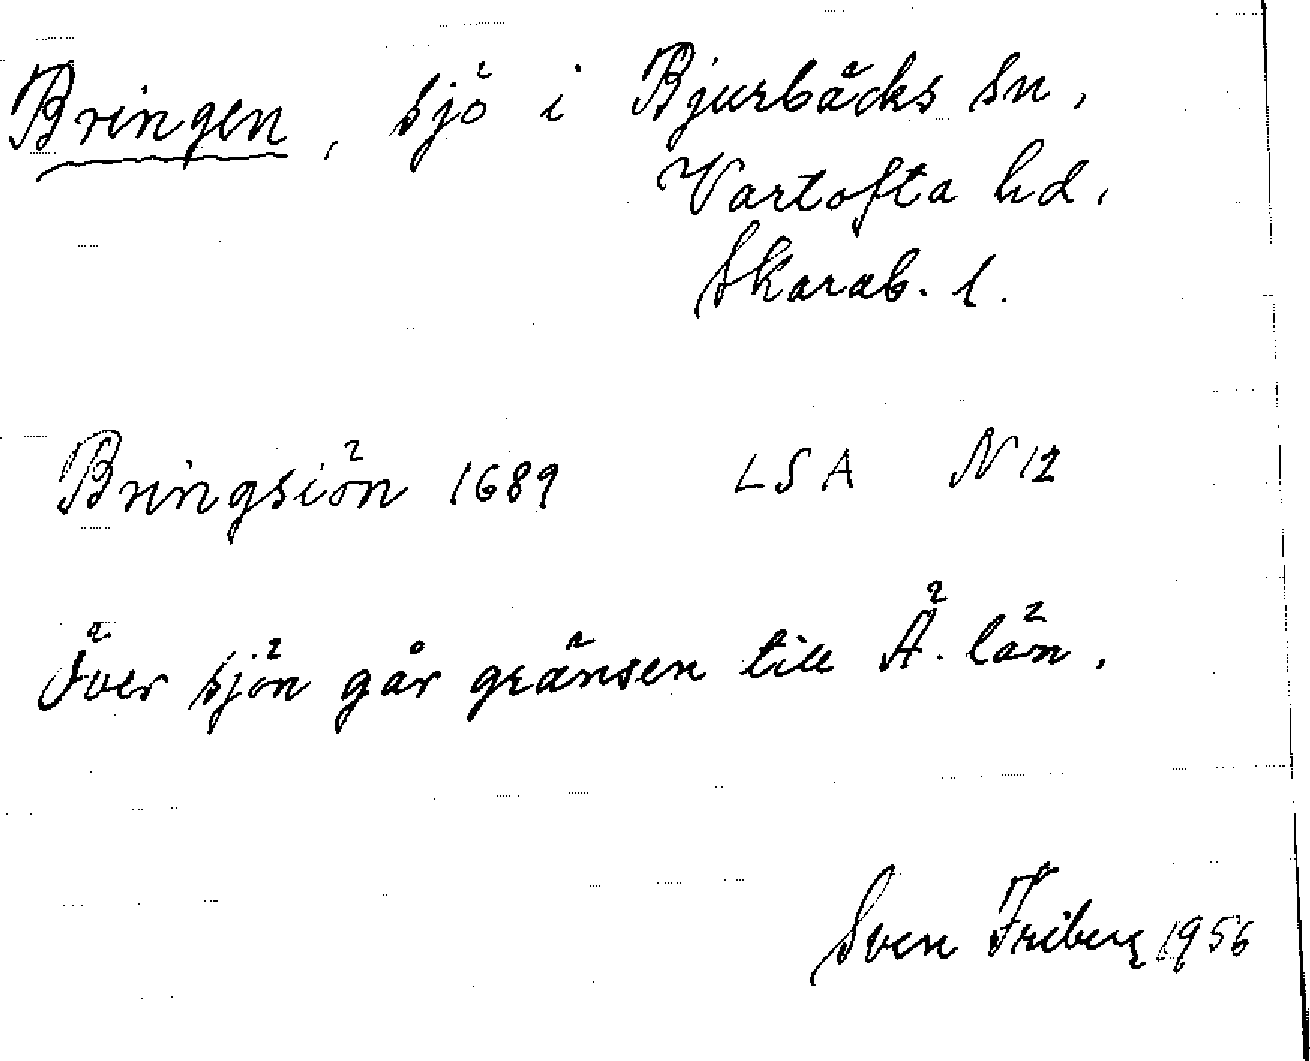 Bringen, sjö i Bjurbäcks sn,
Vartofta hd,
Skarab. l.
Bringsiön 1689 LSA N 12
Över sjön går gränsen till Ä. län.
Sven Friberg 1956